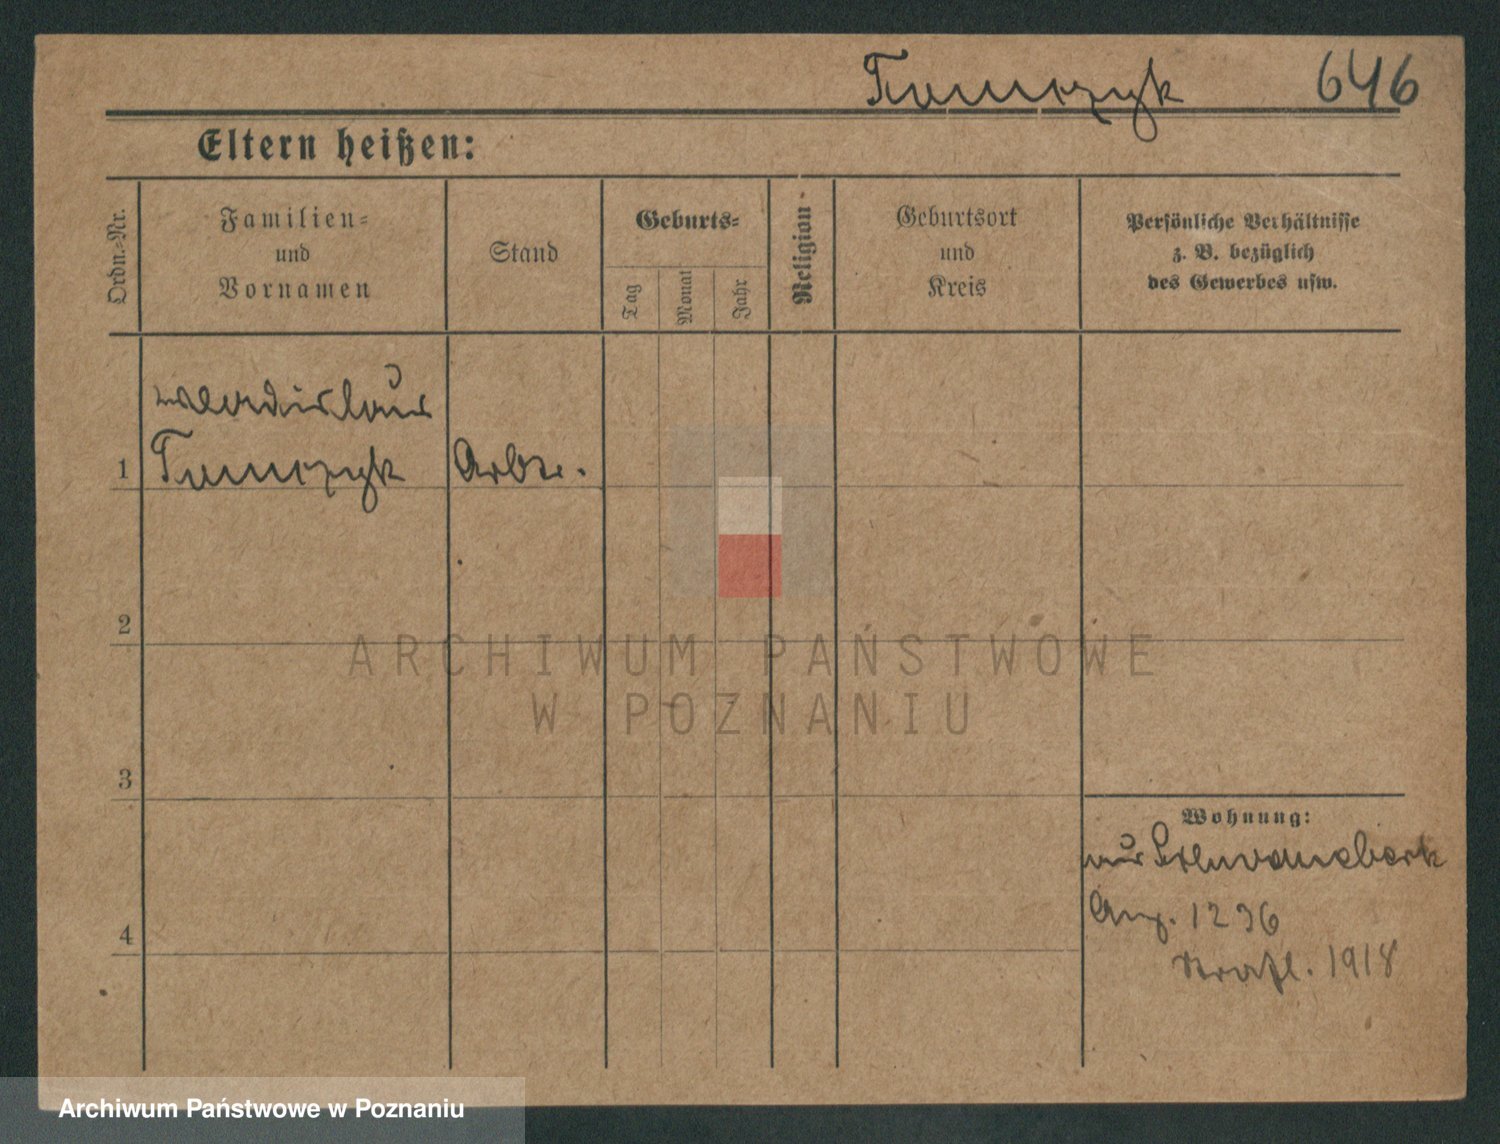 Tomczyk 646
Eltern heißen:
Ordn.=Nr.
Familien=
und
Vornamen
Stand
Geburts=
Tag
Monat
Jahr
Religion
Geburtsort
und
Kreis
Persönliche Verhältnisse
z. B. bezüglich
des Gewerbes usw.
Wladislaus
1 Tomczyk Arbtr.
2
3
4
Wohnung:
aus
Ang. 1236
1918
ARCHIWUM PAŃSTWOWE
W POZNANIU
Archiwum Państwowe w Poznaniu